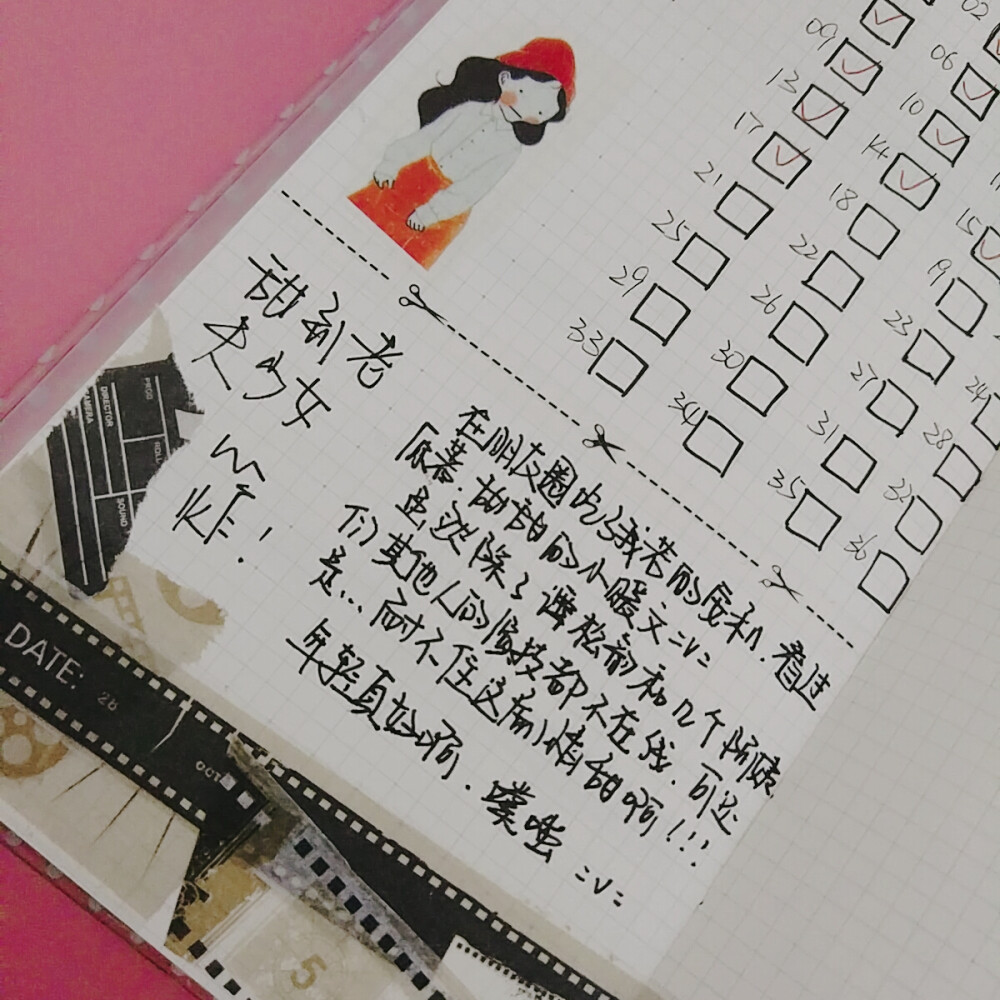 02
09 06
13 10
17 14
21 18 15
25 22 19
29 26 23
33 30 27 24
34 31 28
35 32
36
甜到老
夫少女
心
炸!
在朋友圈吃了我若的安利.看过
原著.甜甜的小暖文=v=
虽然除了谭松韵和几个阿姨
们其他人的演技都不在线.可还
是...耐不住这剧情甜啊!!!
年轻真好啊.噗嗤 =v=
DIRECTOR
SOUND
DATE:
28
OCT
5